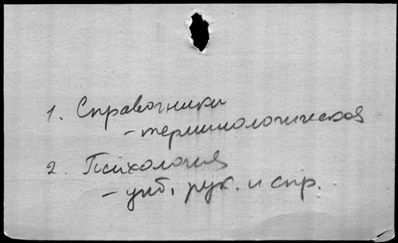 1. Справочники
- терминологическая
2. Психология
- учб. рук. и спр.